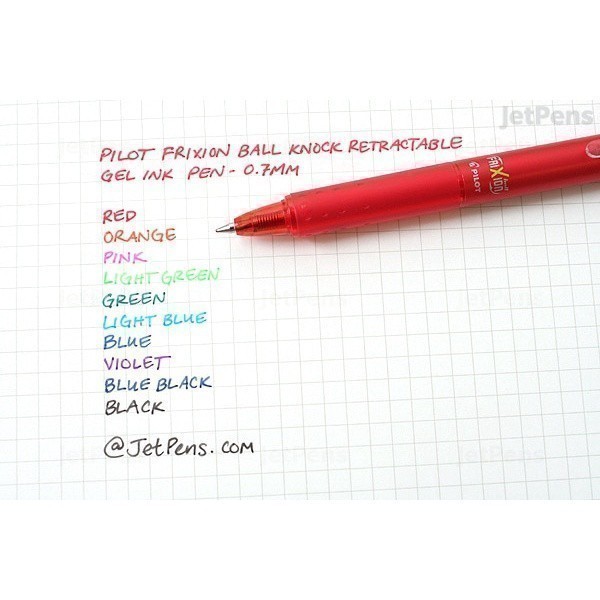 JetPens
PILOT FRIXION BALL KNOCK RETRACTABLE
GEL INK PEN - 0.7MM
FRIXION ball
PILOT
RED
ORANGE
PINK
LIGHT GREEN
GREEN
LIGHT BLUE
BLUE
VIOLET
BLUE BLACK
BLACK
@JetPens.com